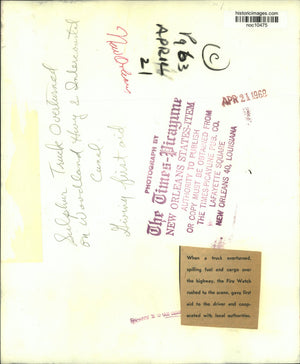 historicimages.com
noc10475
(C)
P963
APRIL
21
APR 21 1963
Sulphur Truck Overturned
on Woodland Hwy & Intercoastal
Canal.
Giving first aid
PHOTOGRAPH BY
The Times-Picayune
NEW ORLEANS STATES-ITEM
AUTHORITY TO PUBLISH
OR COPY MUST BE OBTAINED FROM
THE TIMES-PICAYUNE PUB. CO.
LAFAYETTE SQUARE
NEW ORLEANS 40, LOUISIANA
When a truck overturned,
spilling fuel and cargo over
the highway, the Fire Watch
rushed to the scene, gave first
aid to the driver and coop-
erated with local authorities.